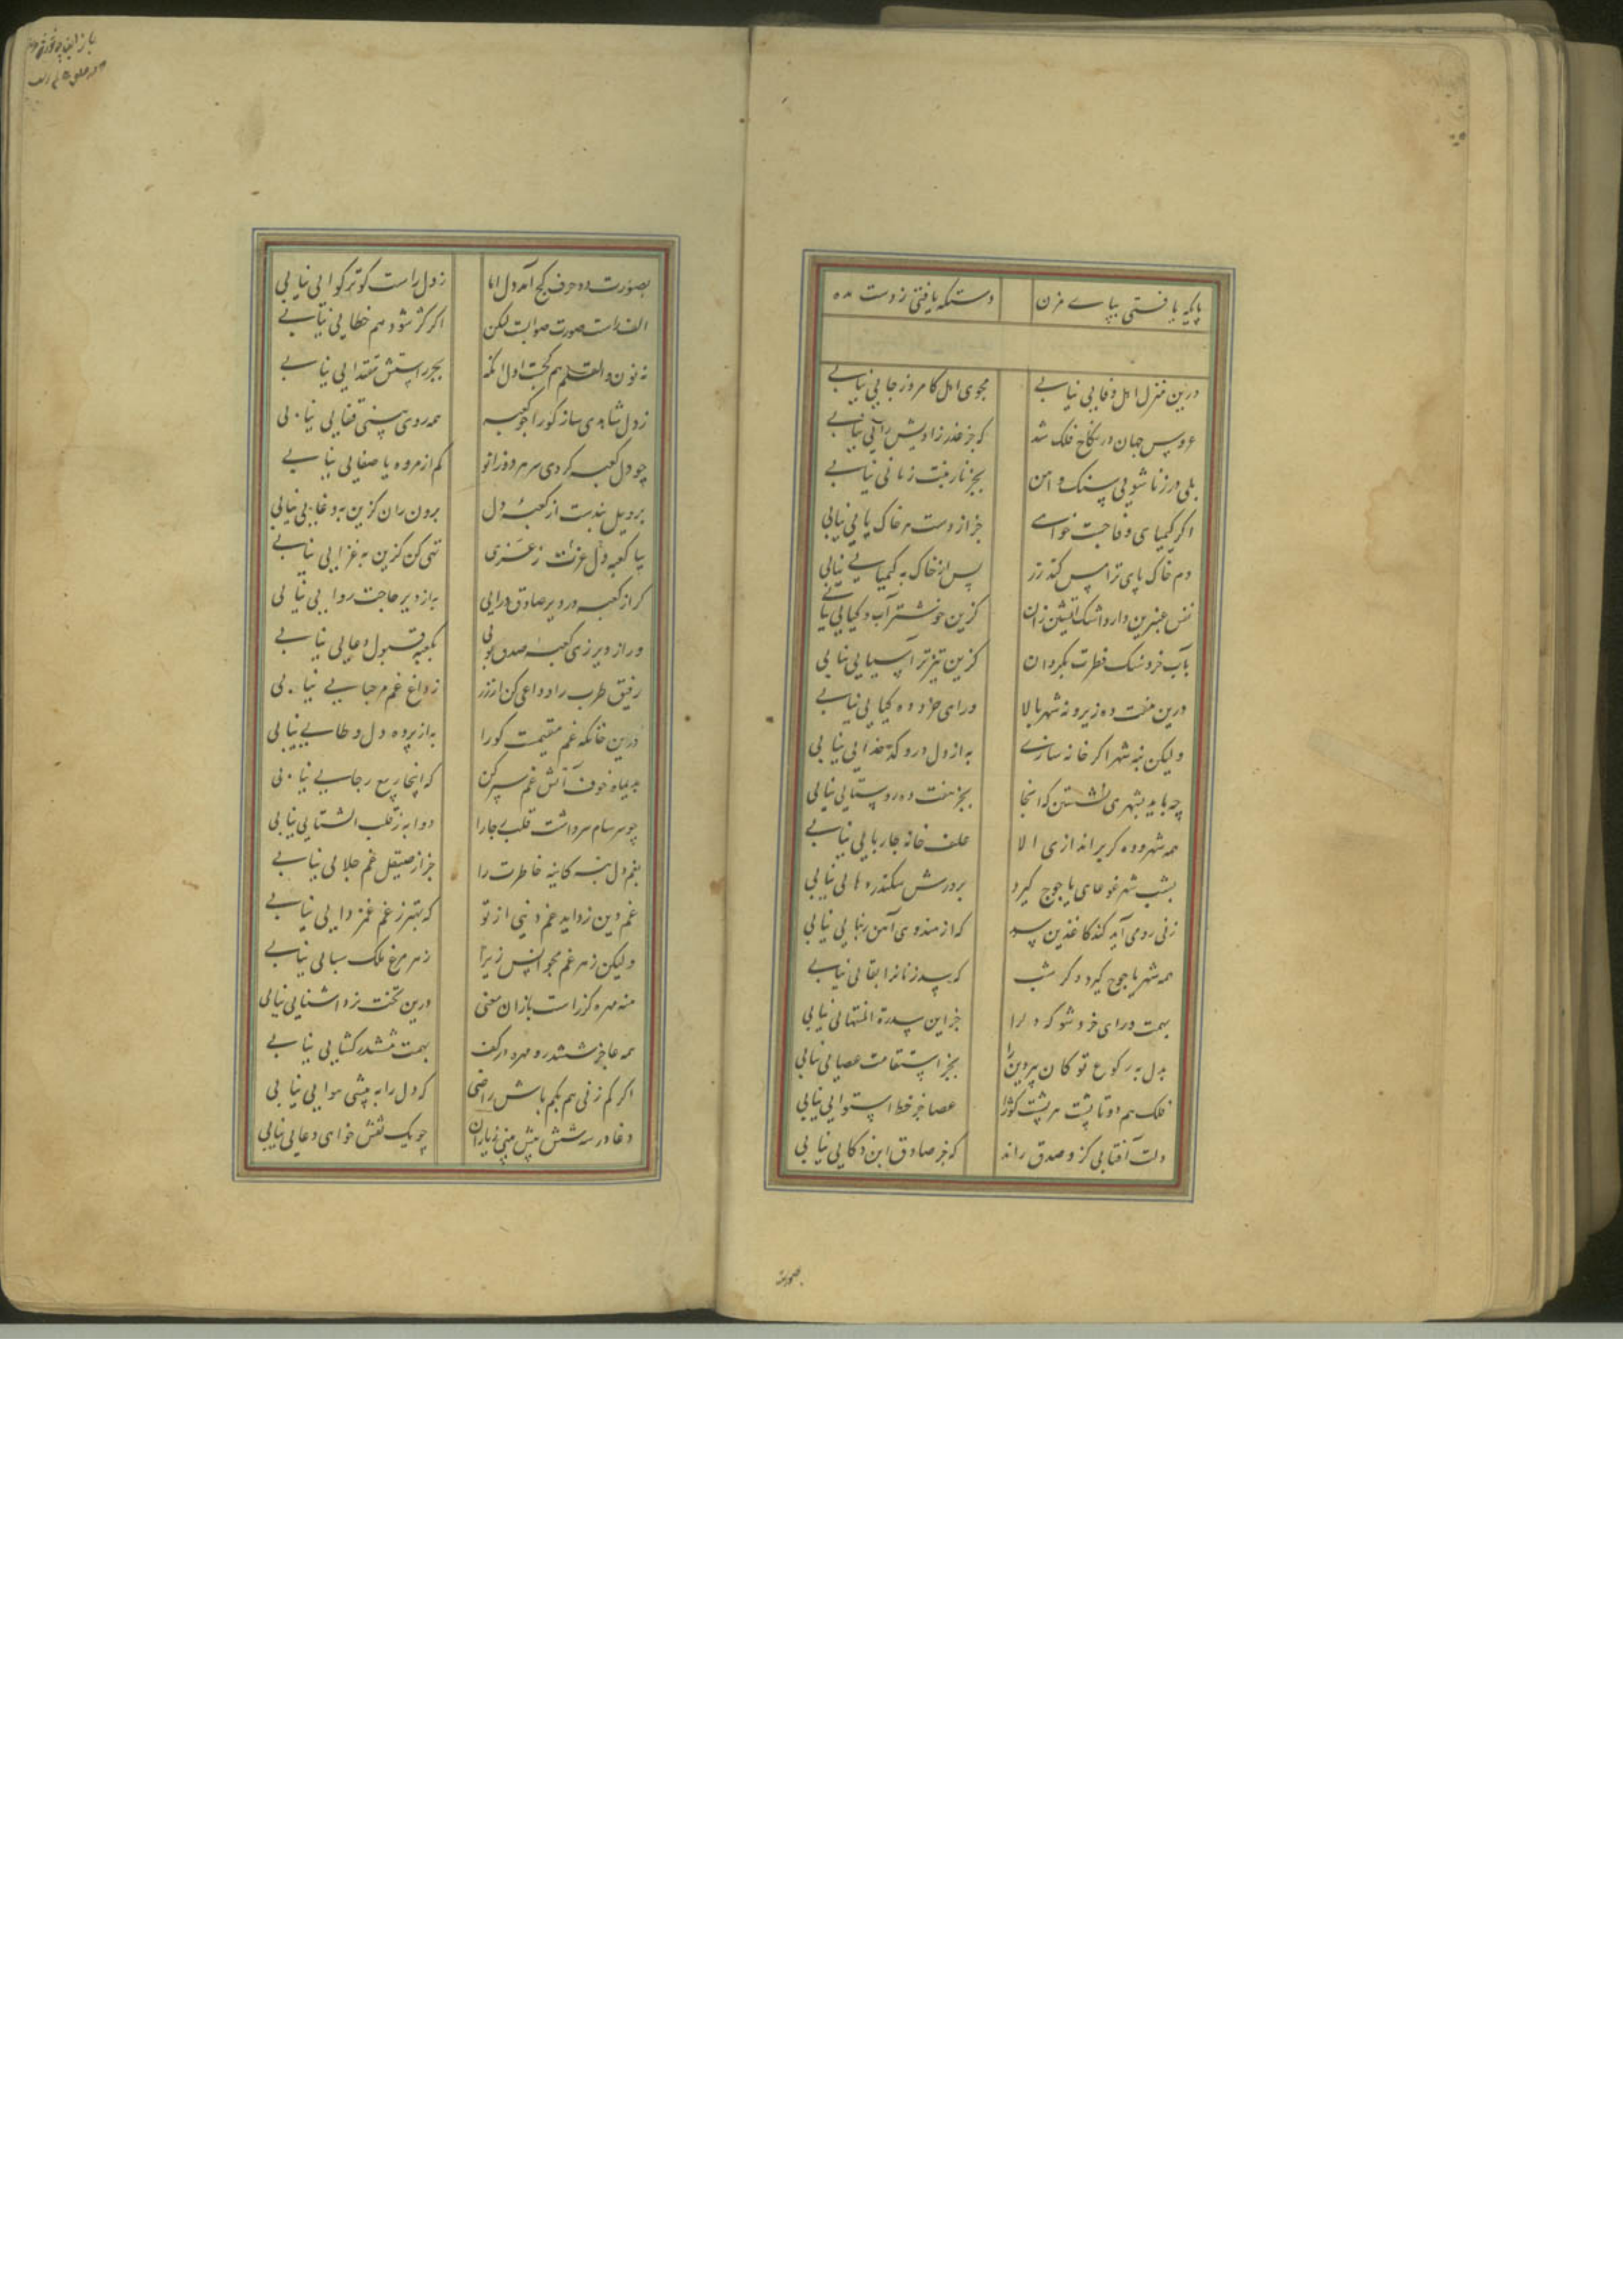 پایگه یافتی بپای مزن دستگه یافتی ز دست مده
درین منزل اهل وفایی نیابی مجوی اهل کامروز جایی نیابی
عروس جهان در نکاح فلک شد که جز عذر زادیش رایی نیابی
بلی در زناشویی سنگ و آهن بجز نار بنت زنایی نیابی
اگر کیمیای وفا جست خواهی جز از دست هر خاک پایی نیابی
دم خاک پای ترا مس کند زر پس از خاک به کیمیایی نیابی
نفس عنبرین دار و اشک آتشین زان کزین خوشتر آب و گیایی نیابی
بآب خرد سنگ فطرت بگردان کزین تیزتر آسیایی نیابی
درین هفت ده زیر و نه شهر بالا ورای خرد ده کیایی نیابی
ولیکن بنه شهر اگر خانه سازی به از دل درو کدخدایی نیابی
چه باید بشهری نشستن که آنجا بجز هفت ده روستایی نیابی
همه شهر و ده گر براندازی الا علف خانه چارپایی نیابی
بشب شهر غوغای یاجوج گیرد بدرش سکندر دهایی نیابی
زنی رومی آید کند کاغذین سد که از هندوی آهن بنایی نیابی
همه شهر یاجوج گیرد دگر شب که سد زنانرا بقایی نیابی
بهمت ورای خرد شو که دلرا جز این سدرة المنتهایی نیابی
بدل به رکوع تو کان پیر دین را بجز استقامت عصایی نیابی
فلک هم دوتا پشت هر پشت کوژرا عصا جز خط استوایی نیابی
دلت آفتابی کز و صدق راند که جز صادق ابن ذکایی نیابی
بصورت
بصورت دو حرف کج آمد دل اما ز دل راست گوتر گوایی نیابی
الف راست صورت صوابست لیکن اگر کژ شود هم خطایی نیابی
نه نون والقلم هم کجست اول آنگه بجز راستش مقتدایی نیابی
ز دل شاهدی ساز کورا چو کعبه همه روی بینی قفایی نیابی
چو دل کعبه کردی سر هر دو زانو کم از مروه یا صفایی نیابی
برو پیل پندشت از کعبه دل برون ران کزین به وغایی نیابی
بیا کعبه دل عزت ز عزی تهی کن کزین به غزایی نیابی
گر از کعبه در دیر صادق درایی به از دیر حاجت روایی نیابی
ور از دیر زی کعبه بی صدق پویی بکعبه قبول دعایی نیابی
رفیق طرب را وداعی کن ار زر ز داغ غم مرحبایی نیابی
درین خانگه غم مقیمست کورا به از پرده دل وطایی نیابی
بدیماه خوف آتش غم سپر کن که اینجا ربیع رجایی نیابی
چو سرسام سرداشت قلب جارا دوا به ز قلب الشتایی نیابی
بغم دل بنه کاینه خاطرت را جز از صیقل غم جلایی نیابی
غم دین زداید غم دنیی از تو که بهتر ز غم غمزدایی نیابی
ولیکن ز هر غم مجو انس زیرا ز هر مرغ ملک سبایی نیابی
منه مهره کز راست بازان معنی درین تخت نرد آشنایی نیابی
همه عاجز ششدر و مهره در کف بهمت ششدرگشایی نیابی
اگر کم زنی هم بکم باش راضی که دل را به بیشی هوایی نیابی
دغا در سه شش بیش بینی ز یاران چو یک نقش خواهی دغایی نیابی